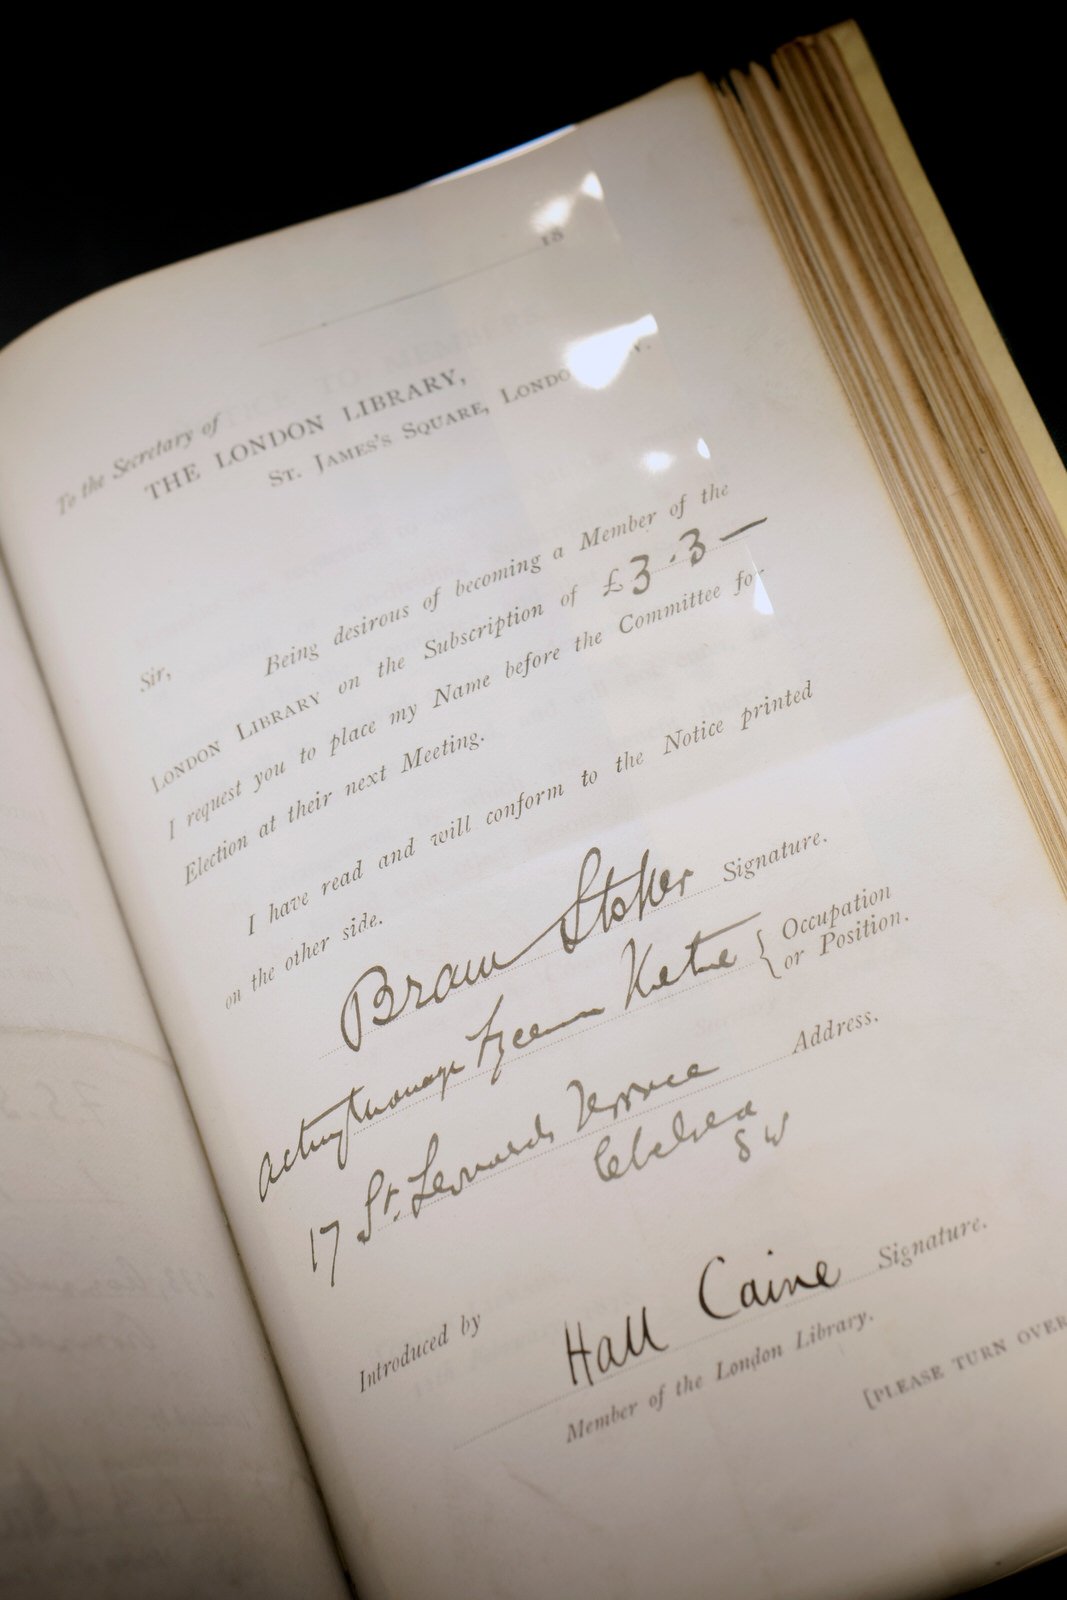 18
To the Secretary of
THE LONDON LIBRARY,
ST. JAMES'S SQUARE,
Sir,
Being desirous of becoming a Member of the
LONDON LIBRARY on the Subscription of £3.3—
I request you to place my Name before the Committee for
Election at their next Meeting.
I have read and will conform to the Notice printed
on the other side.
Bram Stoker Signature.
Acting Manager Lyceum Theatre { Occupation
or Position.
17 St. Leonards Terrace Address.
Chelsea
SW
Introduced by
Hall Caine Signature.
Member of the London Library.
[PLEASE TURN OVER